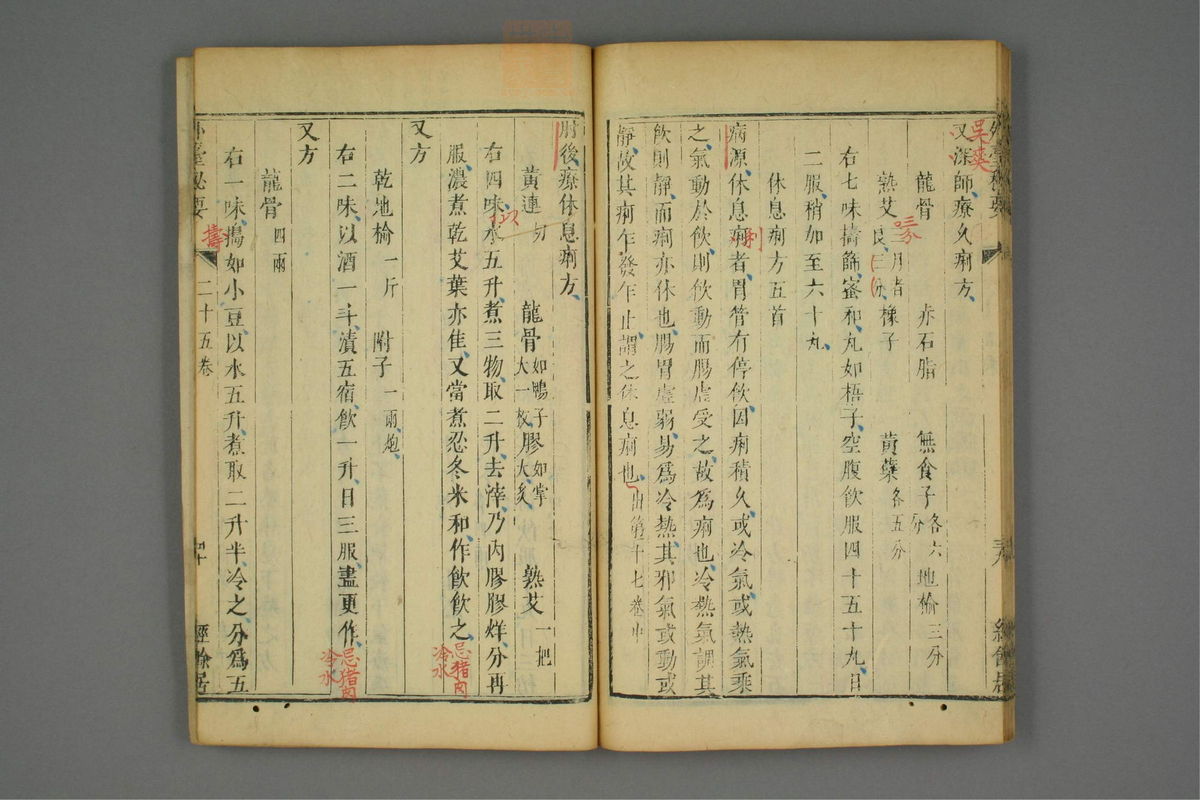 外臺秘要
三九
經餘居
吳萸
又深師療久痢方
龍骨 赤石脂 無食子各六分 地榆三分
熟艾 橡子 黄蘗各五分
三分
右七味擣篩蜜和丸如梧子空腹飲服四十五十丸日
二服稍加至六十丸
休息痢方五首
病源休息痢者胃管有停飲因痢積久或冷氣或熱氣乘
利
之氣動於飲則飲動而腸虛受之故爲痢也冷熱氣調其
飲則靜而痢亦休也腸胃虛弱易爲冷熱其邪氣或動或
靜故其痢乍發乍止謂之休息痢也出第十七卷中
肘後療休息痢方
黄連切 龍骨如鴨子大一枚 膠如掌大炙 熟艾一把
右四味水五升煮三物取二升去滓乃内膠膠烊分再
以
服濃煮乾艾葉亦佳又當煮忍冬米和作飲飲之
忌猪肉冷水
又方
乾地榆一斤 附子一兩炮
右二味以酒一斗漬五宿飲一升日三服盡更作
忌猪肉冷水
又方
龍骨四兩
右一味搗如小豆以水五升煮取二升半冷之分爲五
擣
外臺秘要
二十五卷
四十
經餘居